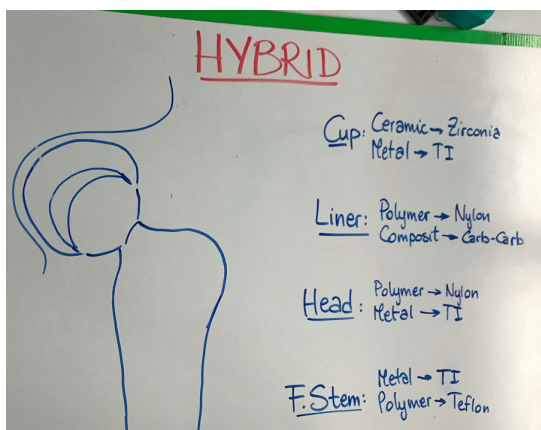 HYBRID
Cup: Ceramic → Zirconia
Metal → TI
Liner: Polymer → Nylon
Composit → Carb-Carb
Head: Polymer → Nylon
Metal → TI
F.Stem: Metal → TI
Polymer → Teflon